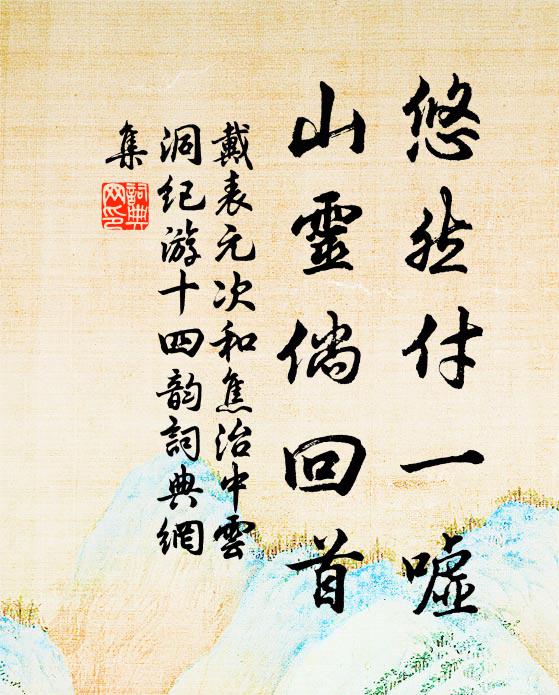 悠然付一噓
山靈倘回首
戴表元次和焦治中雲
洞纪游十四韵詞典網
集
詞典
网印